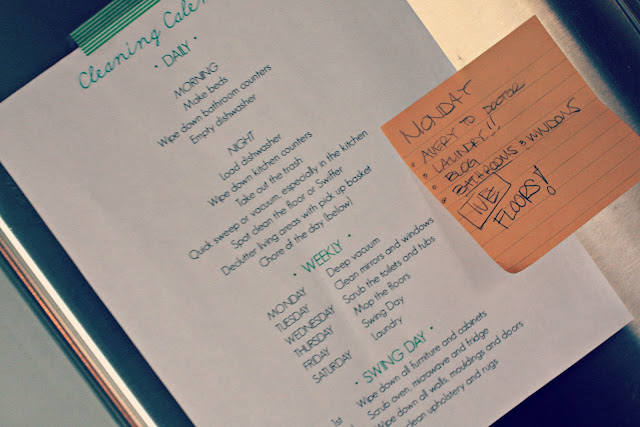 Cleaning Cale
• DAILY •
MORNING
Make beds
Wipe down bathroom counters
Empty dishwasher
NIGHT
Load dishwasher
Wipe down kitchen counters
Take out the trash
Quick sweep or vacuum, especially in the kitchen
Spot clean the floor or Swiffer
Declutter living areas with pick up basket
Chore of the day (below)
• WEEKLY •
MONDAY Deep vacuum
TUESDAY Clean mirrors and windows
WEDNESDAY Scrub the toilets and tubs
THURSDAY Mop the floors
FRIDAY Swing Day
SATURDAY Laundry
• SWING DAY •
1st Wipe down all furniture and cabinets
Scrub oven, microwave and fridge
Wipe down all walls, mouldings and doors
clean upholstery and rugs
MONDAY
• AVERY TO DOCTOR
• LAUNDRY!!
• BLOG
• BATHROOMS & WINDOWS
TUE
FLOORS!